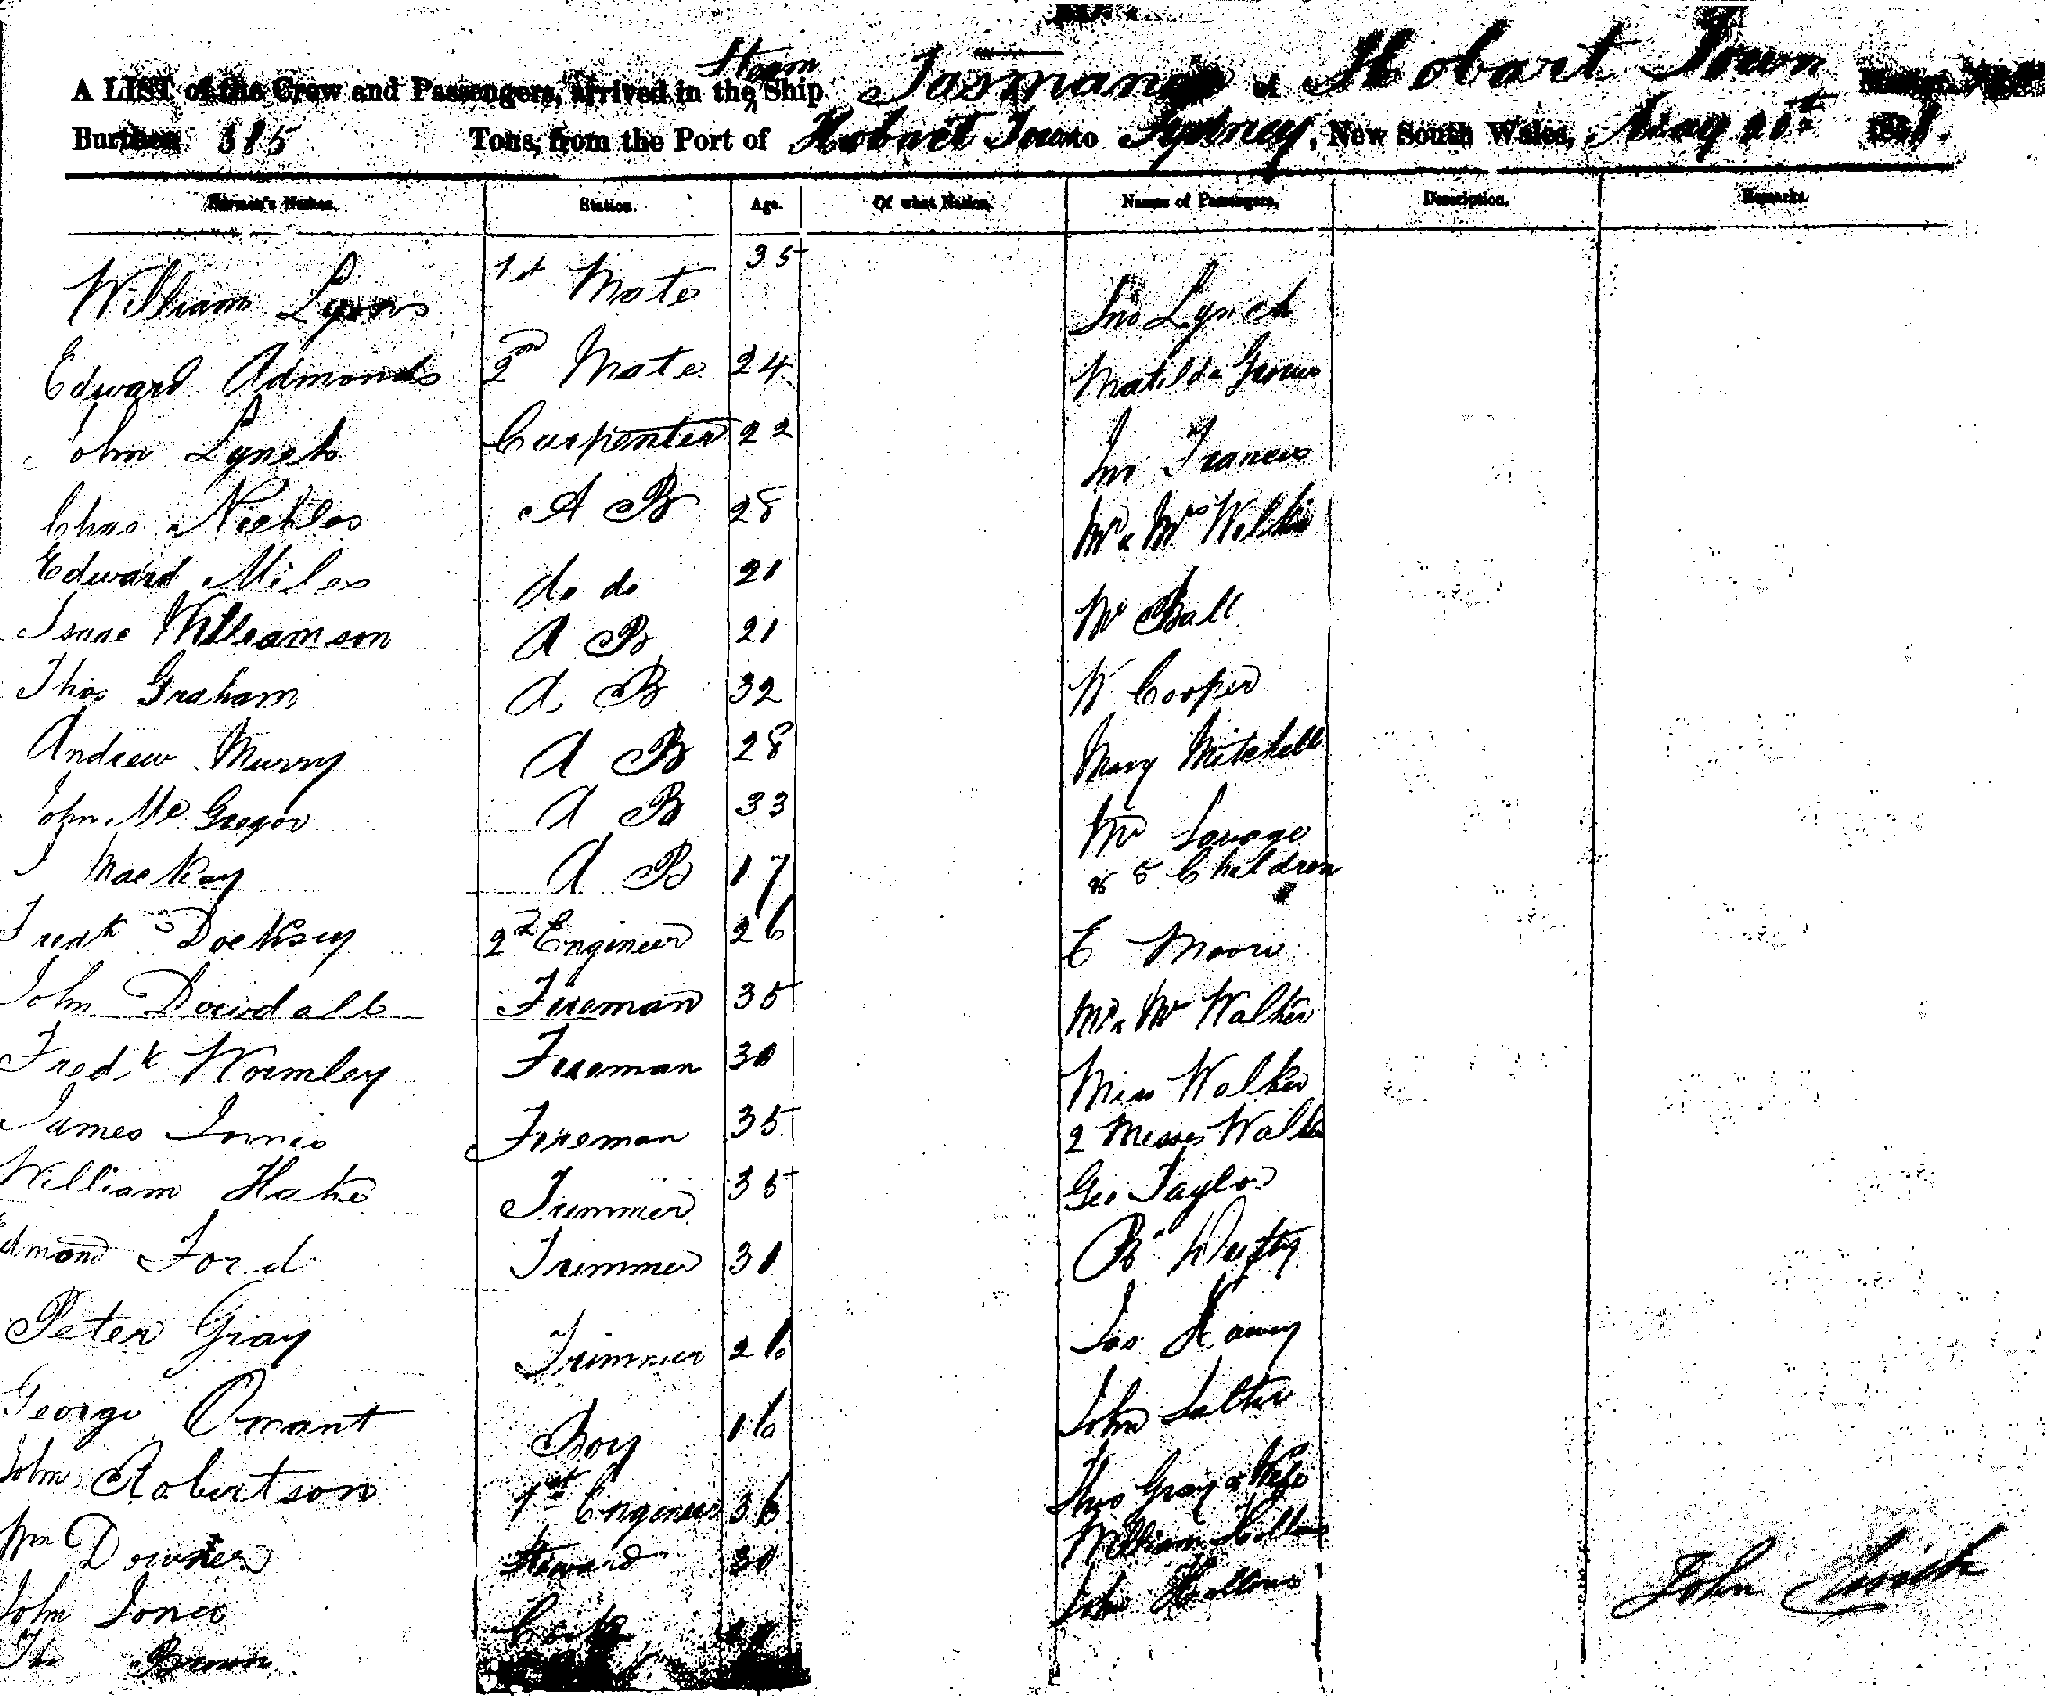 A LIST of the Crew and Passengers, arrived in the Steam Ship Tasmania of Hobart Town
Burthen 385 Tons, from the Port of Hobart Town to Sydney, New South Wales, May 21st 1861.
Seamen's Names. Station. Age. Of what Nation. Names of Passengers. Description. Remarks.
William Lyons 1st Mate 35 Jno Lynch
Edward Admonds 2nd Mate 24 Matilda
John Lynch Carpenter 22 Jno Francis
Chas Nickles A B 28 Mr & Mrs Wilkie
Edward Miles do do 21 Mr Ball
Isaac Williamson A B 21 W Cooper
Thos Graham A B 32 Mary Mitchell
Andrew Murry A B 28 Mrs Savage
John McGregor A B 33 & 5 Children
J MacKay A B 17 E Moore
Fredk Docksey 2d Engineer 26 Mr & Mrs Walker
John Dowdall Fireman 35 Miss Walker
Fredk Wormley Fireman 30 2 Messrs Walker
James Innis Fireman 35 Geo Taylor
William Hake Trimmer 35
Edmond Ford Trimmer 31 Jas
Peter Gray Trimmer 26 John Salter
George Omant Boy 16 Thos Gray & Wife
John Robertson 1st Engineer 36 William
Wm Downer Steward 30 John
John Jones Cook John Clinch
Tho Brown